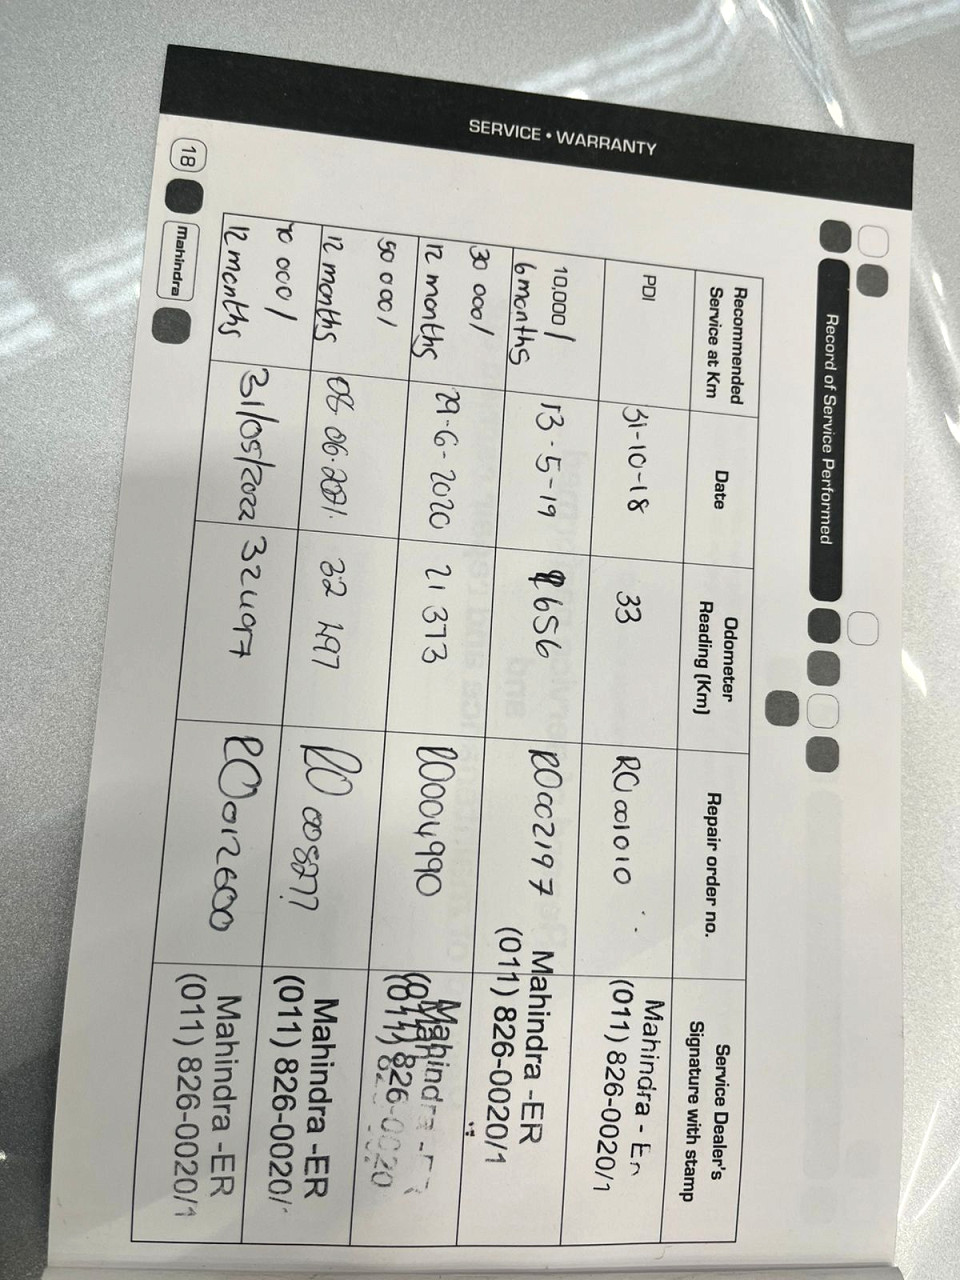 SERVICE • WARRANTY
Record of Service Performed
Recommended Service at Km
Date
Odometer Reading (Km)
Repair order no.
Service Dealer's Signature with stamp
PDI
31-10-18
33
RO001010
Mahindra - ER
(011) 826-0020/1
10,000/
6 months
13-5-19
9656
RO002197
Mahindra -ER
(011) 826-0020/1
30 000/
12 months
29-6-2020
21 373
RO004990
Mahindra -ER
(011) 826-0020
50 000/
12 months
08.06.2021
32 497
RO 008277
Mahindra -ER
(011) 826-0020/1
70 000/
12 months
31/05/2022
324097
RO012600
Mahindra -ER
(011) 826-0020/1
18
mahindra